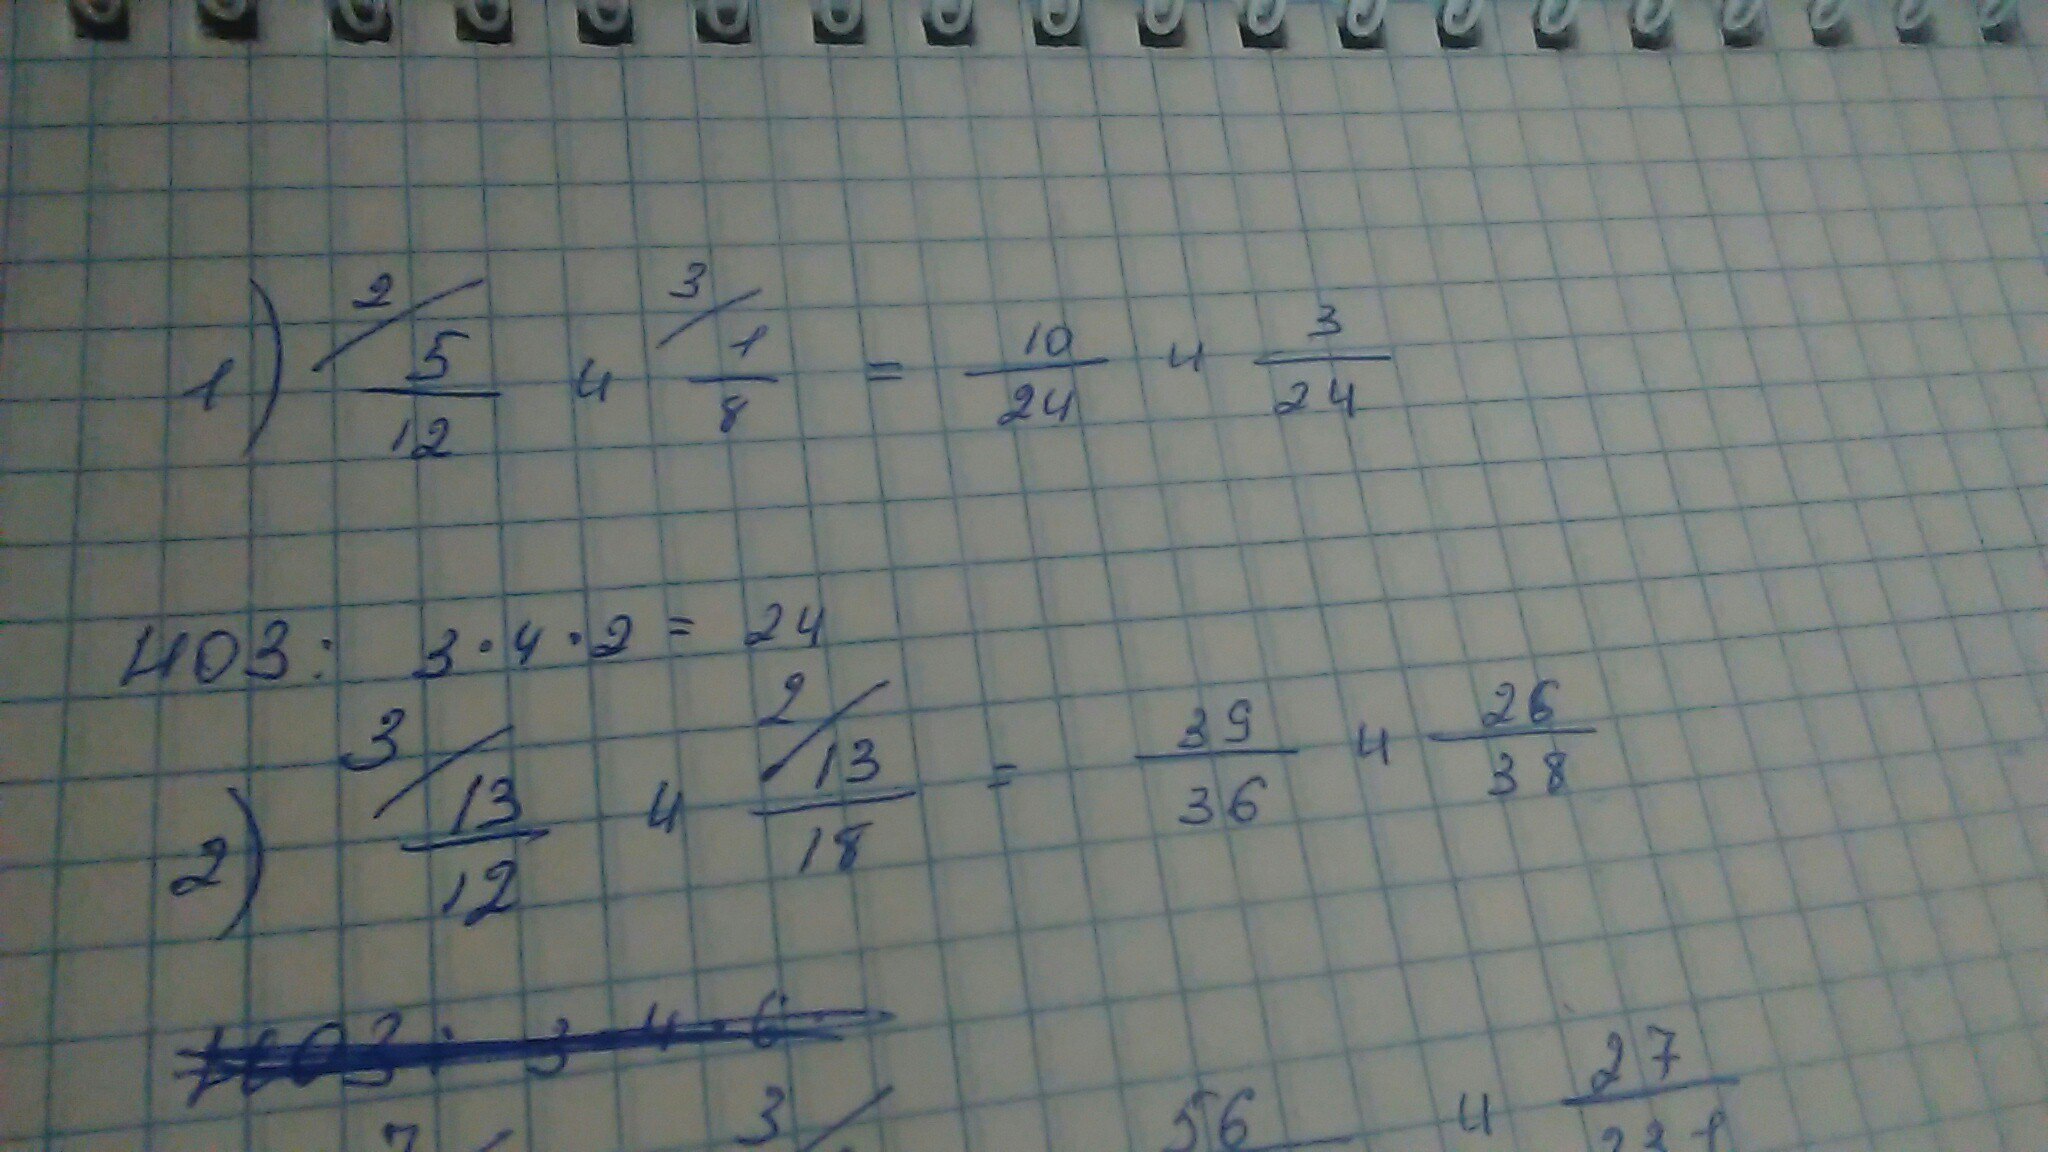 1) 2/ 5/12 и 3/ 1/8 = 10/24 и 3/24
НОЗ: 3·4·2 = 24
2) 3/ 13/12 и 2/ 13/18 = 39/36 и 26/38
НОЗ: 3 4·6
7/ 3/ 56 и 27/231